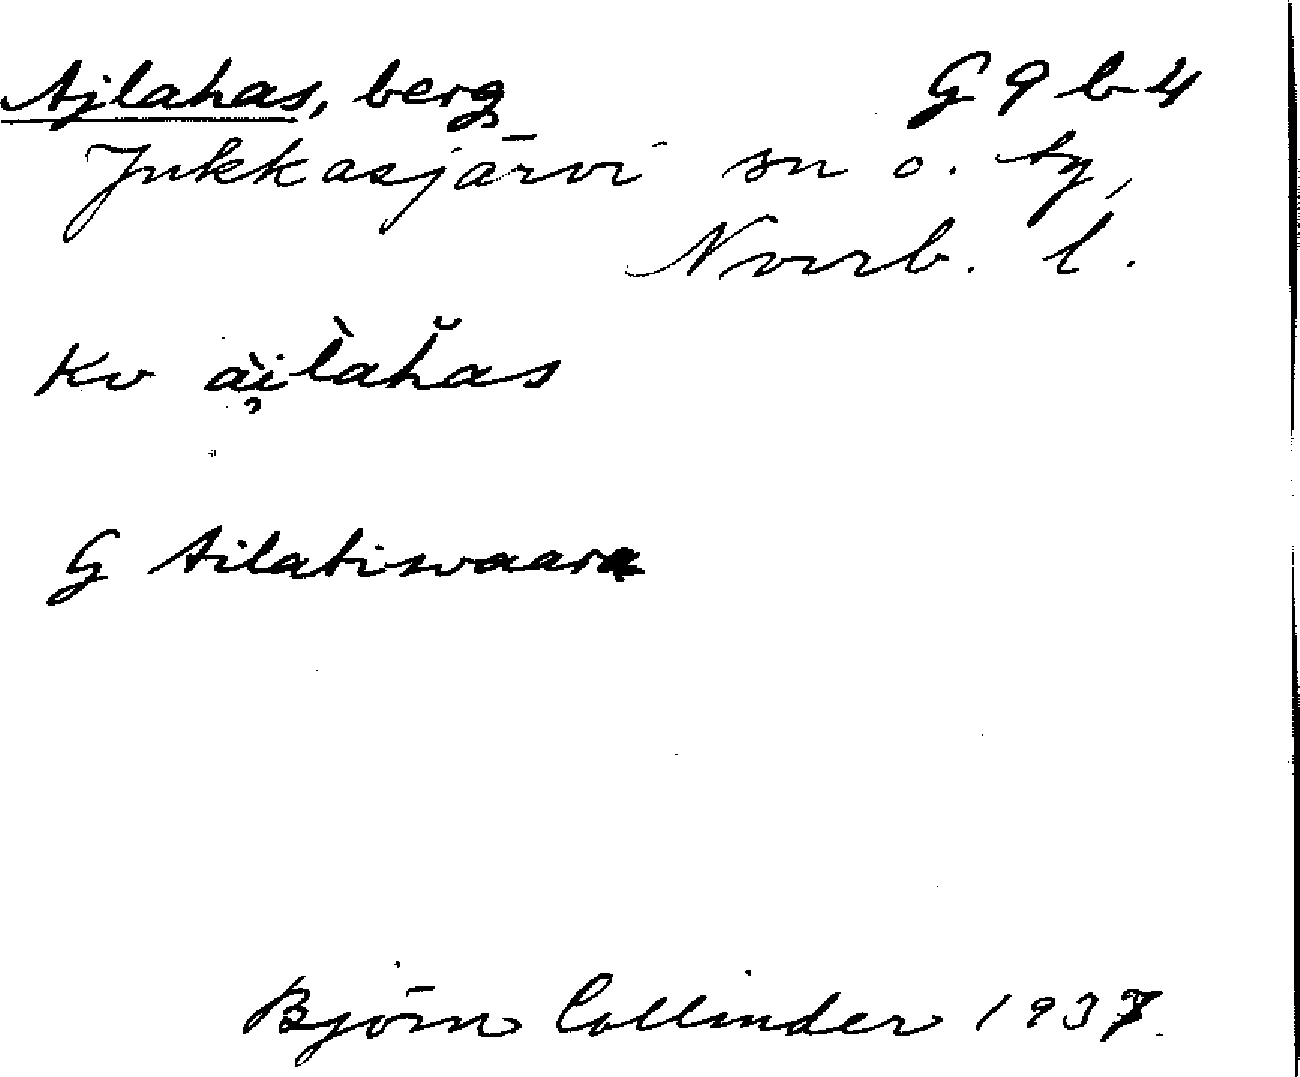 Ajlahas, berg G 9 b 4
Jukkasjärvi sn o. tg,
Norrb. l.
Kv ài̯làh̆as
G Ailatiswaara
Björn Collinder 1937.